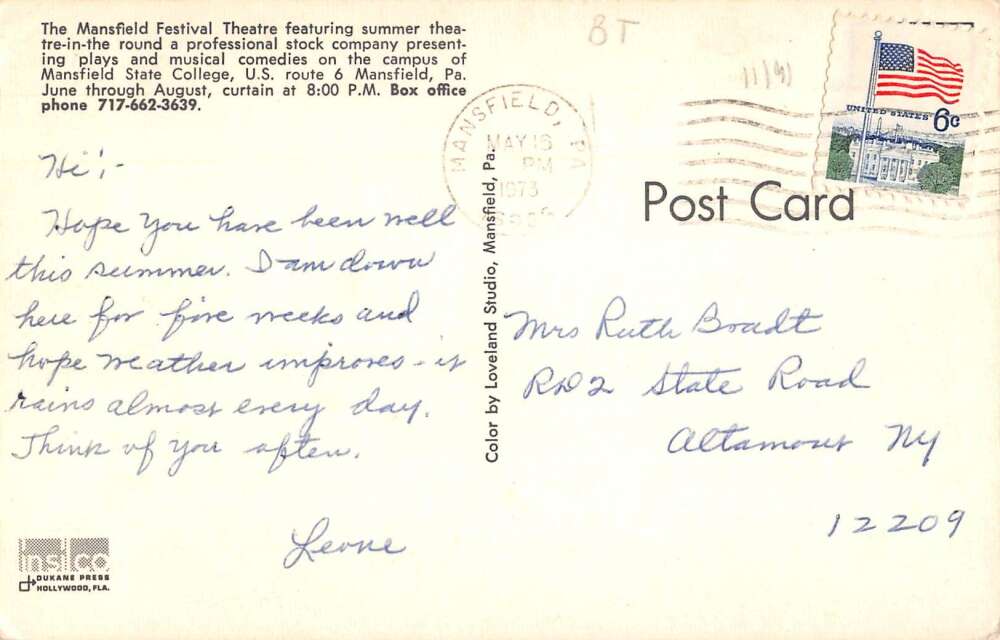 The Mansfield Festival Theatre featuring summer thea-
tre-in-the round a professional stock company present-
ing plays and musical comedies on the campus of
Mansfield State College, U.S. route 6 Mansfield, Pa.
June through August, curtain at 8:00 P.M. Box office
phone 717-662-3639.
BT
11/91
MANSFIELD, PA
MAY 16
PM
1973
UNITED STATES 6c
Post Card
Hi!-
Hope you have been well
this summer. I am down
here for five weeks and
hope weather improves - it
rains almost every day.
Think of you often.
Leone
Color by Loveland Studio, Mansfield, Pa.
Mrs Ruth Bradt
RD2 State Road
Altamont NY
12209
ins co
DUKANE PRESS
HOLLYWOOD, FLA.